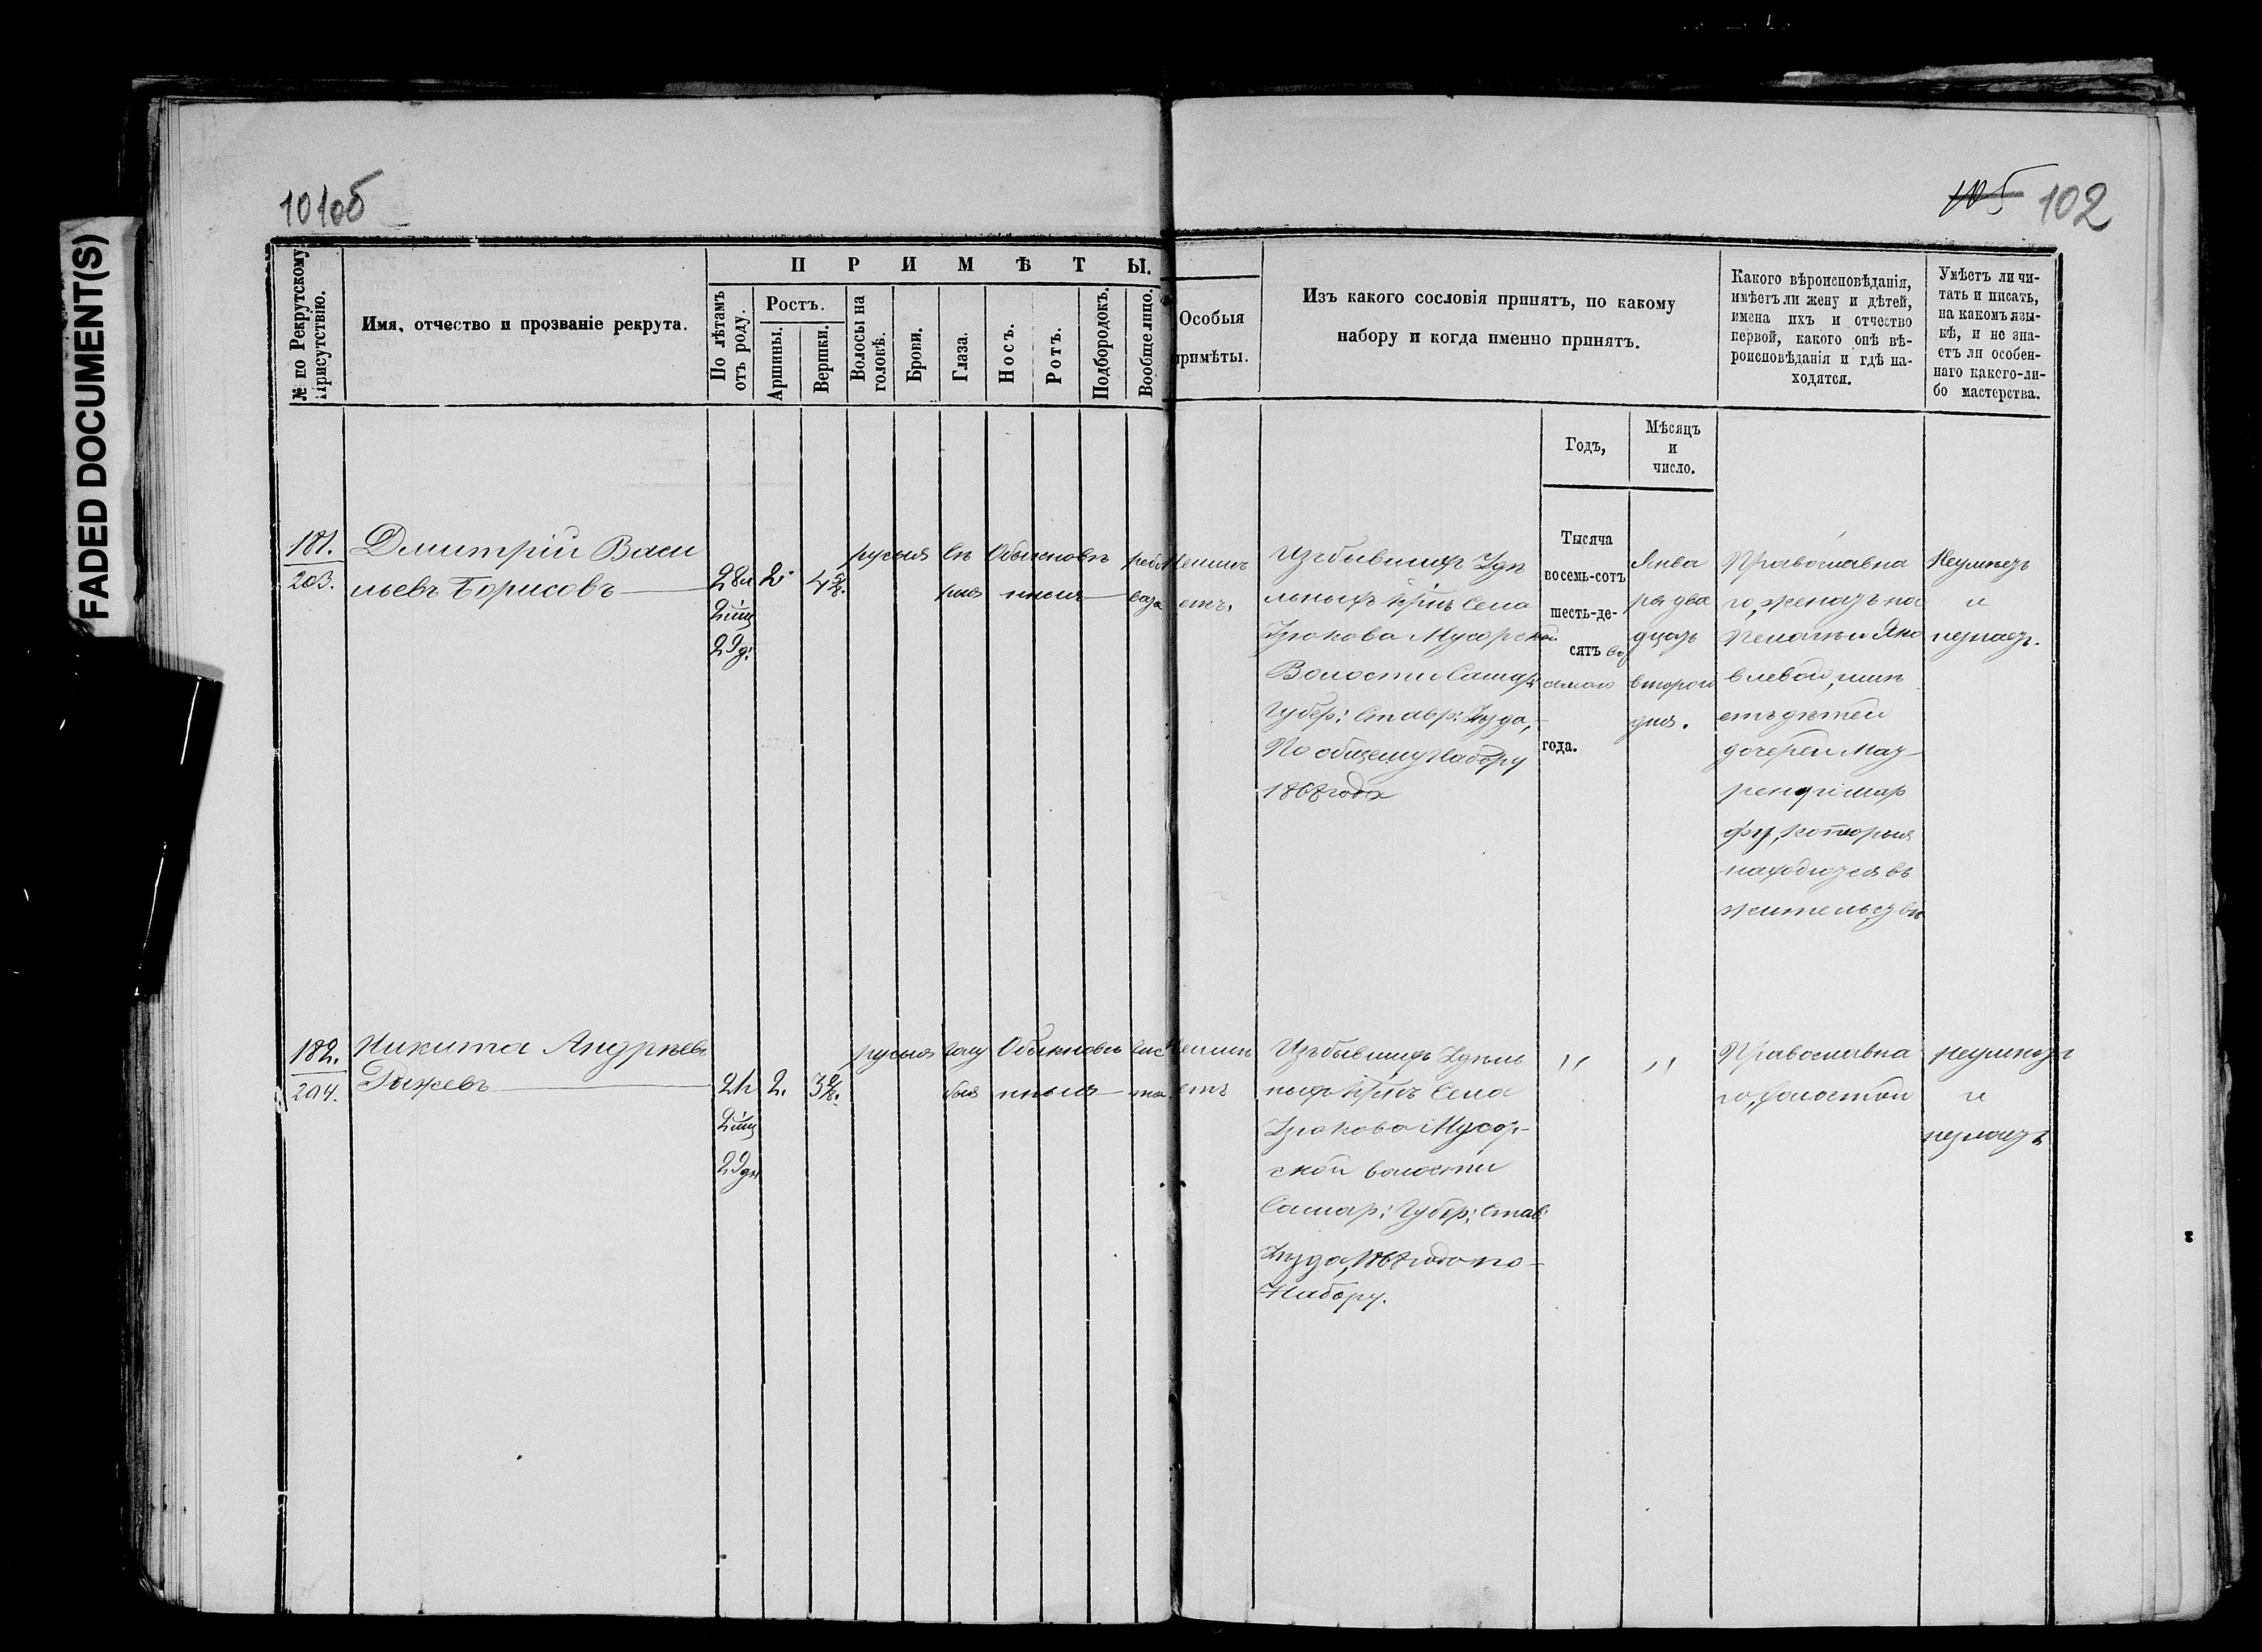 FADED DOCUMENT(S)
101об
105 102
№ по Рекрутскому Присутствію.
Имя, отчество и прозваніе рекрута.
ПРИМѢТЫ.
По лѣтамъ отъ роду.
Ростъ.
Аршины.
Вершки.
Волосы на головѣ.
Брови.
Глаза.
Носъ.
Ротъ.
Подбородокъ.
Вообще лицо.
Особыя
примѣты.
Изъ какого сословія принятъ, по какому
набору и когда именно принятъ.
Какого вѣроисповѣданія,
имѣетъ ли жену и дѣтей,
имена ихъ и отчество
первой, какого онѣ вѣ-
роисповѣданія и гдѣ на-
ходятся.
Умѣетъ ли чи-
тать и писать,
на какомъ язы-
кѣ, и не зна-
етъ ли особен-
наго какого-ли-
бо мастерства.
Годъ,
Мѣсяцъ
и
число.
181.
203.
Дмитрій Васи
льевъ Борисовъ
28
2
4 5/8.
русыя
сѣ
рыя
Обыкновѣ
нныя
рябо
вато
Неимѣ
етъ.
Изъ бывшихъ Удѣ
льныхъ Кр: Села
Узюкова Мусорской
Волости Самар:
Губер: Ставр: Уѣзда,
По общему Набору
1868 года
Тысяча
восемь-сотъ
шесть-де-
сятъ во
сьмого
года.
Янва
ря два
дцать
второго
дня.
Православна
го, женатъ на
Пелагеи Яко
влевой, имѣ
етъ дѣтей
дочерей Мав
ру и Мар
фу, которыя
находятся въ
жительствѣ
Неумѣетъ
и
незнаетъ.
182.
204.
Никита Андрѣевъ
Рыжевъ
2.
русыя
голу
быя
Обыкновѣ
нныя
чис
то
Неимѣ
етъ
Изъ бывшихъ Удѣль
ныхъ Кр: Села
Узюкова Мусор-
ской волости
Самар: Губер: Став:
Уѣзда, 1868 года по
Набору.
" "
Православна
го, холостой
неумѣетъ
и
незнаетъ